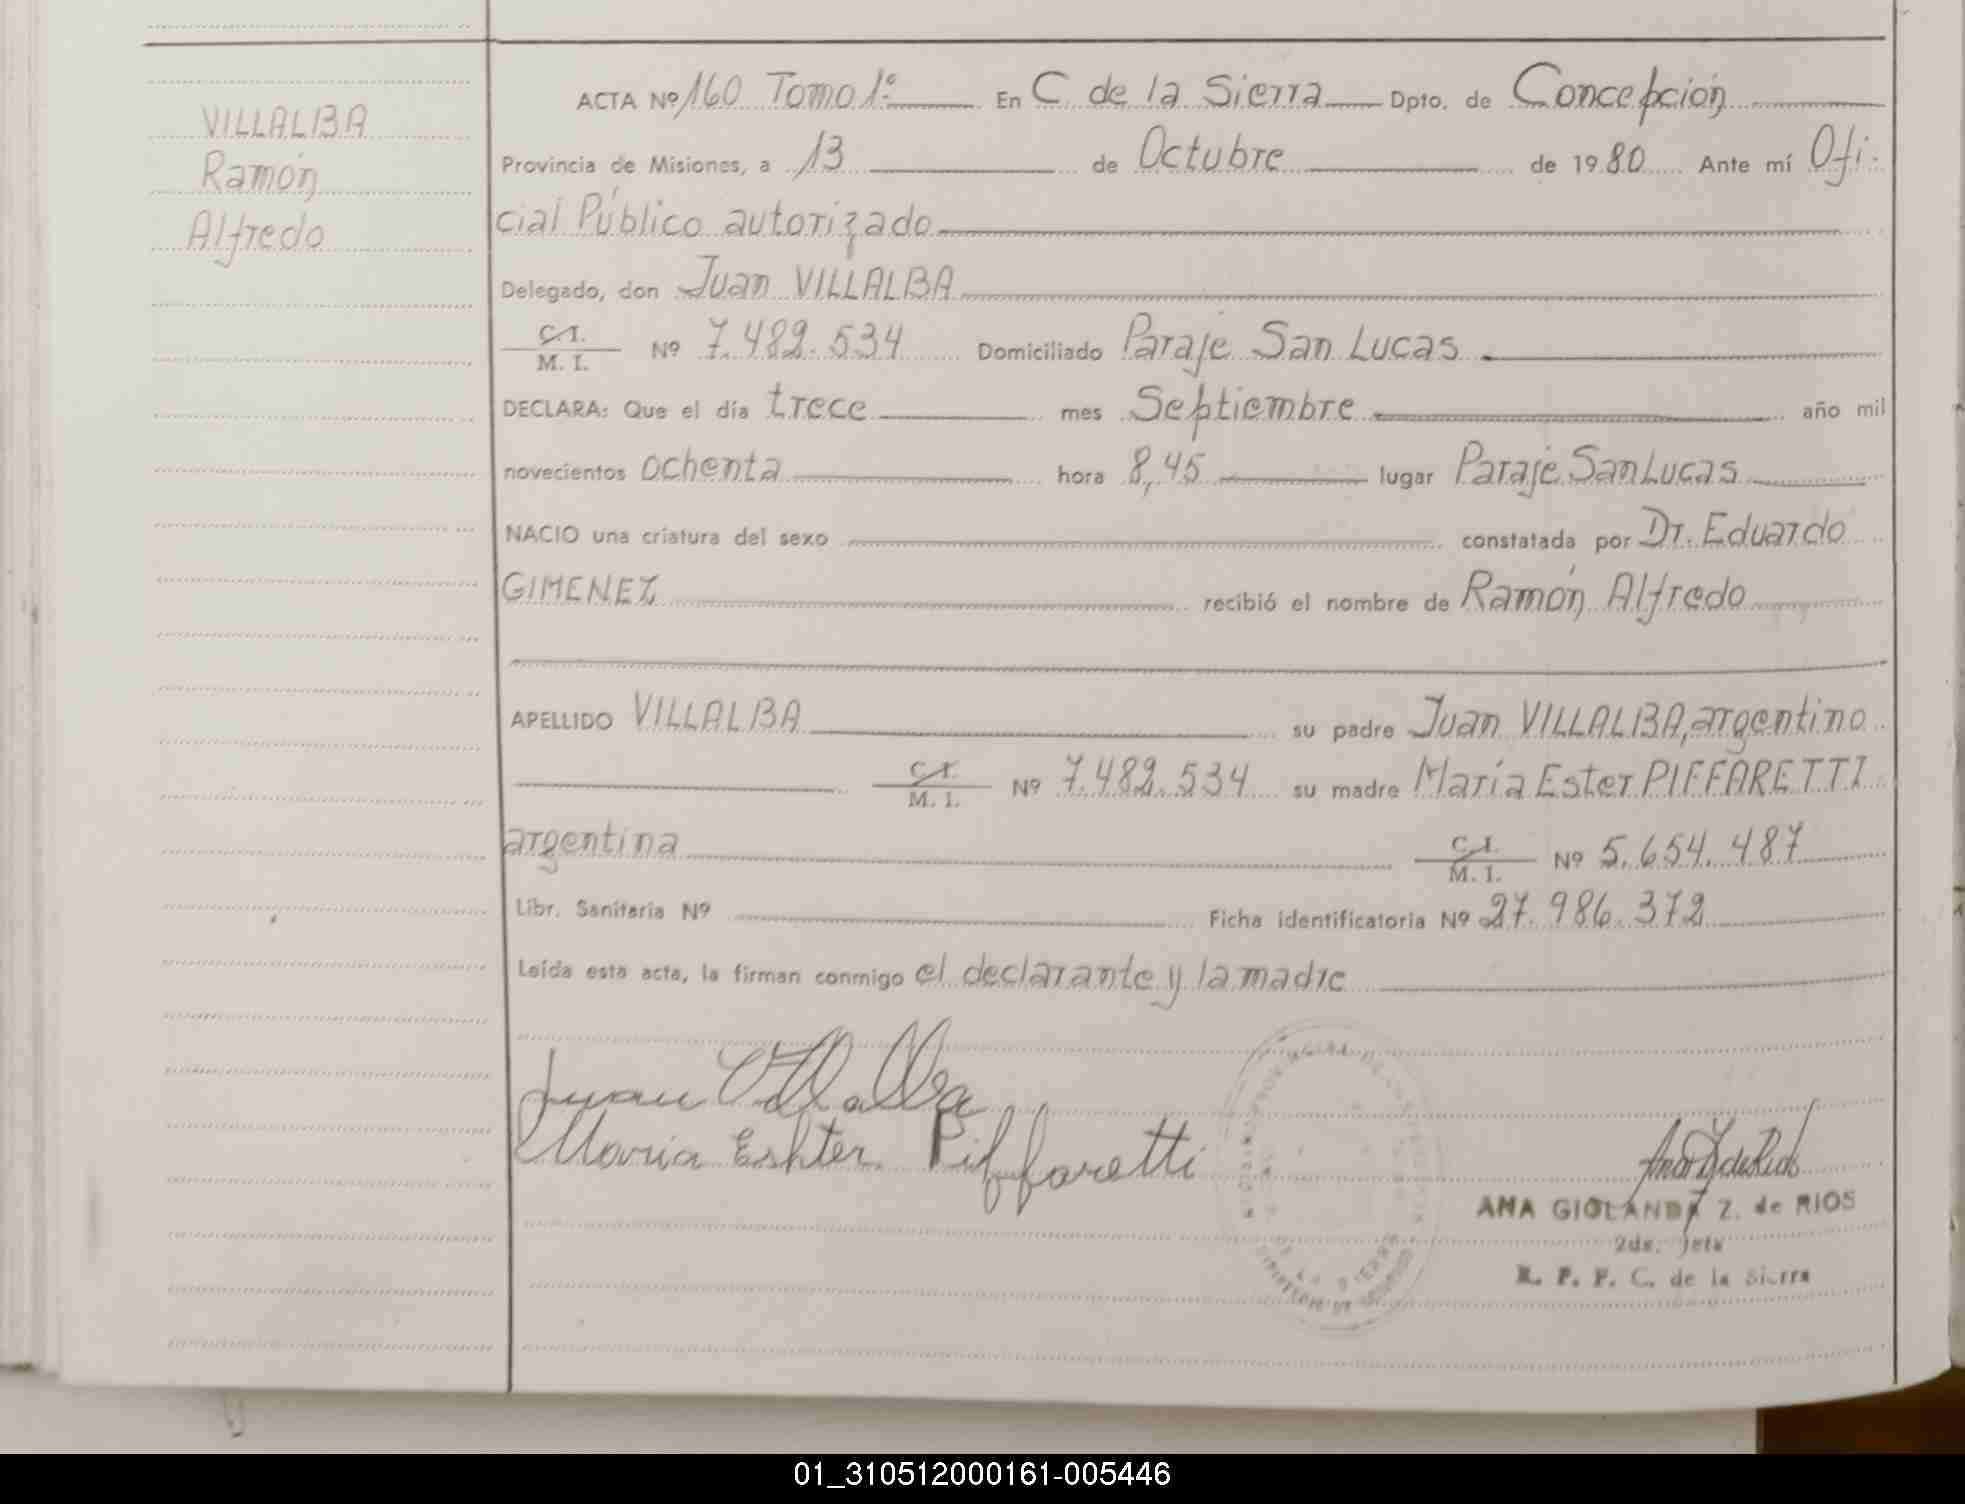 VILLALBA
Ramón
Alfredo
ACTA Nº 160 Tomo 1º En C de la Sierra Dpto. de Concepción
Provincia de Misiones, a 13 de Octubre de 1980 Ante mí Ofi-
cial Público autorizado
Delegado, don Juan VILLALBA
C.I.
M. I. Nº 7.482.534 Domiciliado Paraje San Lucas
DECLARA: Que el día trece mes Septiembre año mil
novecientos ochenta hora 8,45 lugar Paraje San Lucas
NACIO una criatura del sexo constatada por Dr. Eduardo
GIMENEZ recibió el nombre de Ramón Alfredo
APELLIDO VILLALBA su padre Juan VILLALBA, argentino
C.I.
M. I. Nº 7.482.534 su madre María Ester PIFFARETTI
argentina C.I.
M. I. Nº 5.654.487
Libr. Sanitaria Nº Ficha identificatoria Nº 27.986.372
Leída esta acta, la firman conmigo el declarante y la madre
Juan Villalba
Maria Eshter Piffaretti
ANA GIOLANDA Z. de RIOS
2da. Jefa
R. P. P. C. de la Sierra
01_310512000161-005446